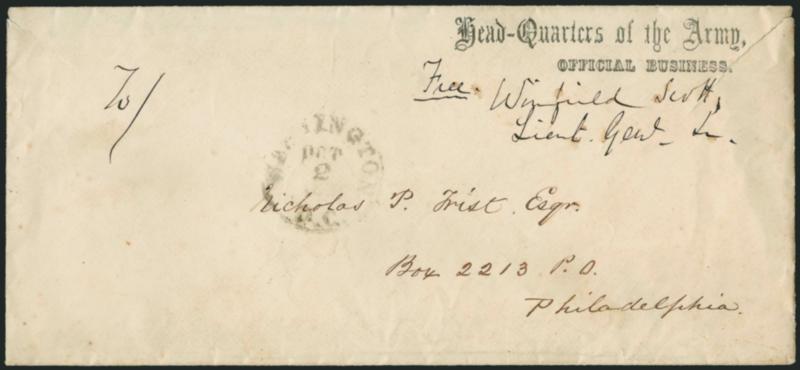 Head-Quarters of the Army,
OFFICIAL BUSINESS.
Free. Winfield Scott,
Lieut. Genl.
To/
WASHINGTON
OCT
2
D.C.
Nicholas P. Trist Esqr.
Box 2213 P.O.
Philadelphia.